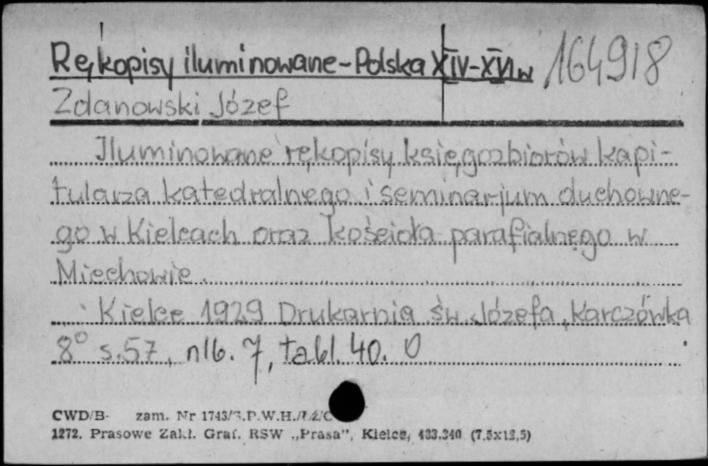 Rękopisy iluminowane-Polska XIV-XVI w 164918
Zdanowski Józef
Iluminowane rękopisy księgozbiorów kapi-
tularza katedralnego i seminarjum duchowne-
go w Kielcach oraz kościoła parafialnego w
Miechowie.
Kielce 1929 Drukarnia św. Józefa, Karczówka
8° s.57, nlb. 7, tabl. 40. O
CWD/B- zam. Nr 1743/
1272. Prasowe Zakł. Graf. RSW „Prasa", Kielce, 433.340 (7,5x12,5)